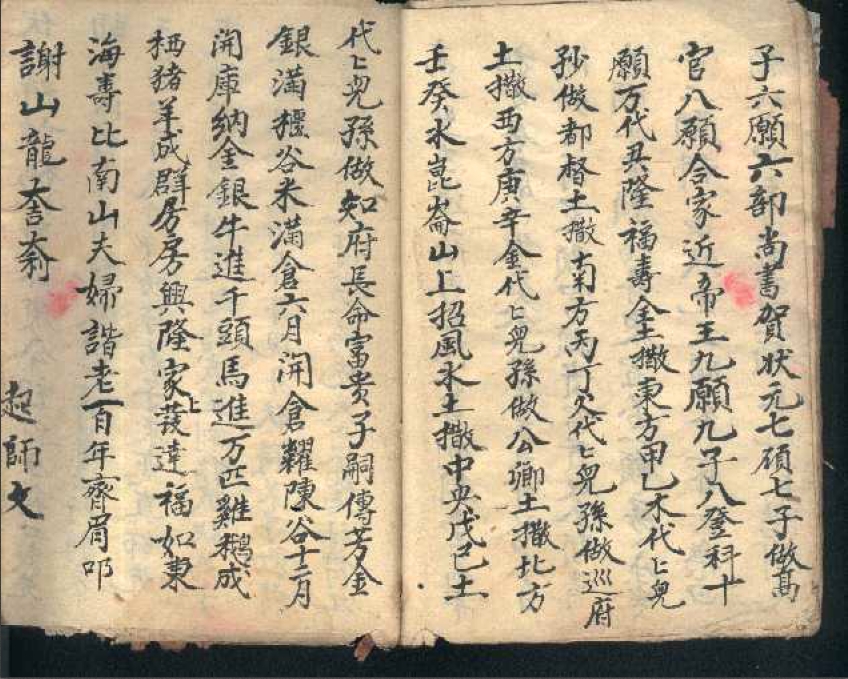 子六願六部尚書賀狀元七碩七子做髙
官八願合家近帝王九願九子八登科十
願万代興隆福壽全土撒東方甲乙木代〻兒
孫做都督土撒南方丙丁火代〻兒孫做巡府
土撒西方庚辛金代〻兒孫做公卿土撒北方
壬癸水崑崙山上招風水土撒中央戊己土
代〻兒孫做知府長命富貴子嗣傳芳金
銀滿櫃谷米滿倉六月開倉糶陳谷十二月
開庫納金銀牛進千頭馬進万匹雞鵝成
栖猪羊成群房房興隆家上發達福如東
海壽比南山夫婦諧老一百年齊眉叩
謝山龍大吉大利
起師文